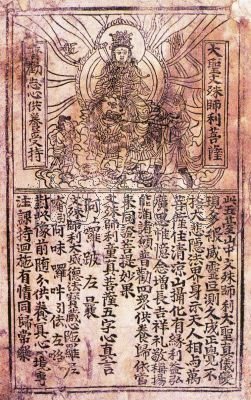 大聖文殊師利菩薩
普勸志心供養受持
此五臺山中文殊師利大聖真儀變
現多般威靈叵測久成正覺不
捨大悲隱法界身示天人相與萬
菩薩住清涼山攝化有緣利益弘
廣思惟憶念增長吉祥礼敬稱揚
能滿諸願普勸四眾供養歸依當
來同證菩提妙果
文殊師利童真菩薩五字心真言
阿上囉跛左曩
文殊師利大威德法寶藏心陁羅尼
唵引阿味囉𤙖引佉左
對此像前隨分供養冥心一境專
注課持迴施有情同歸常樂